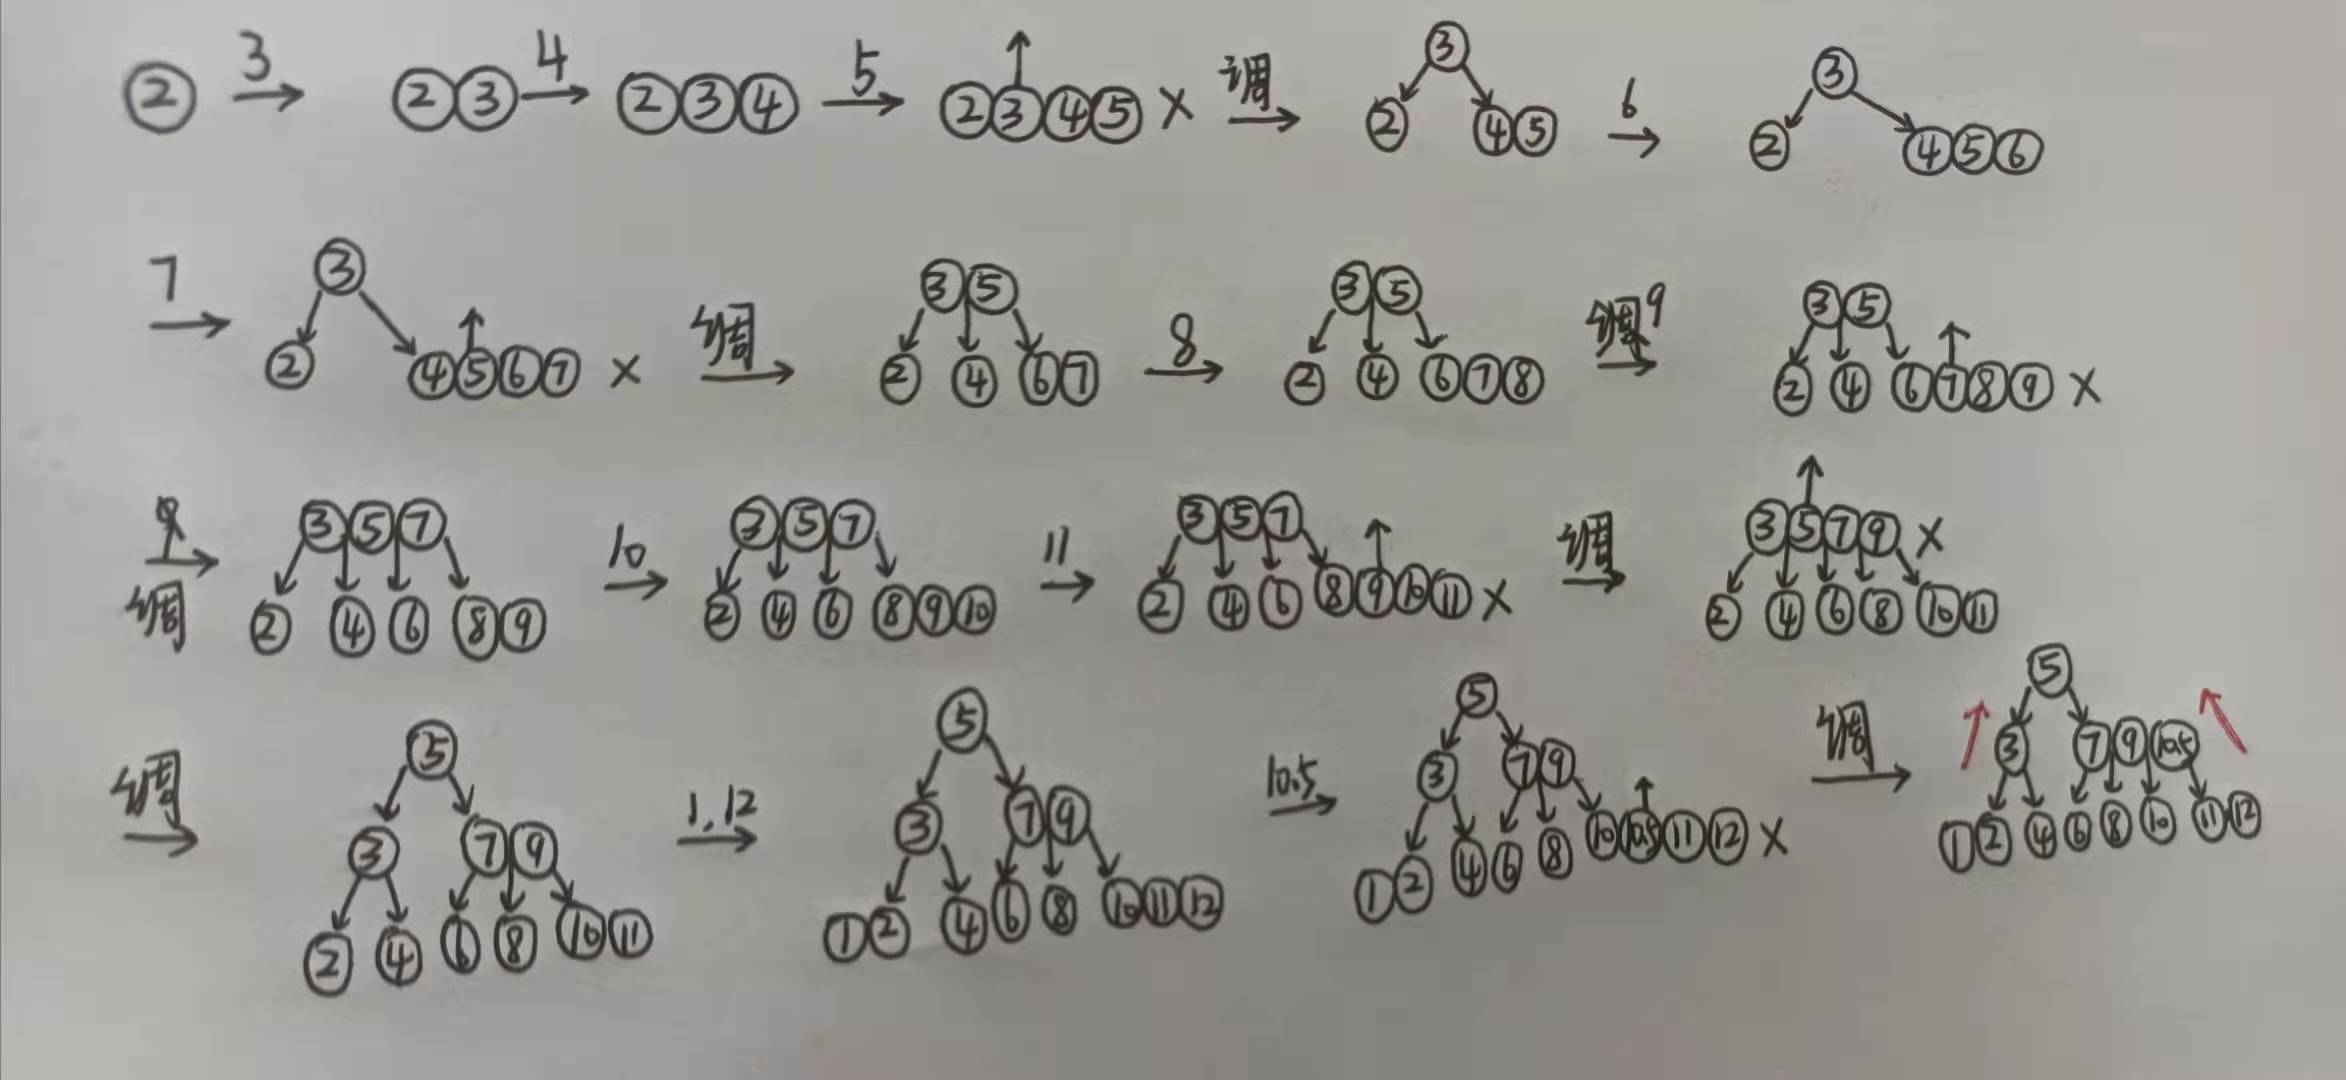 ② 3 ②③ 4 ②③④ 5 ②③④⑤ × 调 ③ ② ④⑤ 6 ③ ② ④⑤⑥
7 ③ ② ④⑤⑥⑦ × 调 ③⑤ ② ④ ⑥⑦ 8 ③⑤ ② ④ ⑥⑦⑧ 9 ③⑤ ② ④ ⑥⑦⑧⑨ ×
调 ③⑤⑦ ② ④ ⑥ ⑧⑨ 10 ③⑤⑦ ② ④ ⑥ ⑧⑨⑩ 11 ③⑤⑦ ② ④ ⑥ ⑧⑨⑩⑪ × 调 ③⑤⑦⑨ × ② ④ ⑥ ⑧ ⑩⑪
调 ⑤ ③ ⑦⑨ ② ④ ⑥ ⑧ ⑩⑪ 1,12 ⑤ ③ ⑦⑨ ①② ④ ⑥ ⑧ ⑩⑪⑫ 10.5 ⑤ ③ ⑦⑨ ①② ④ ⑥ ⑧ ⑩ 10.5 ⑪⑫ × 调 ⑤ ③ ⑦⑨ 10.5 ①② ④ ⑥ ⑧ ⑩ ⑪⑫